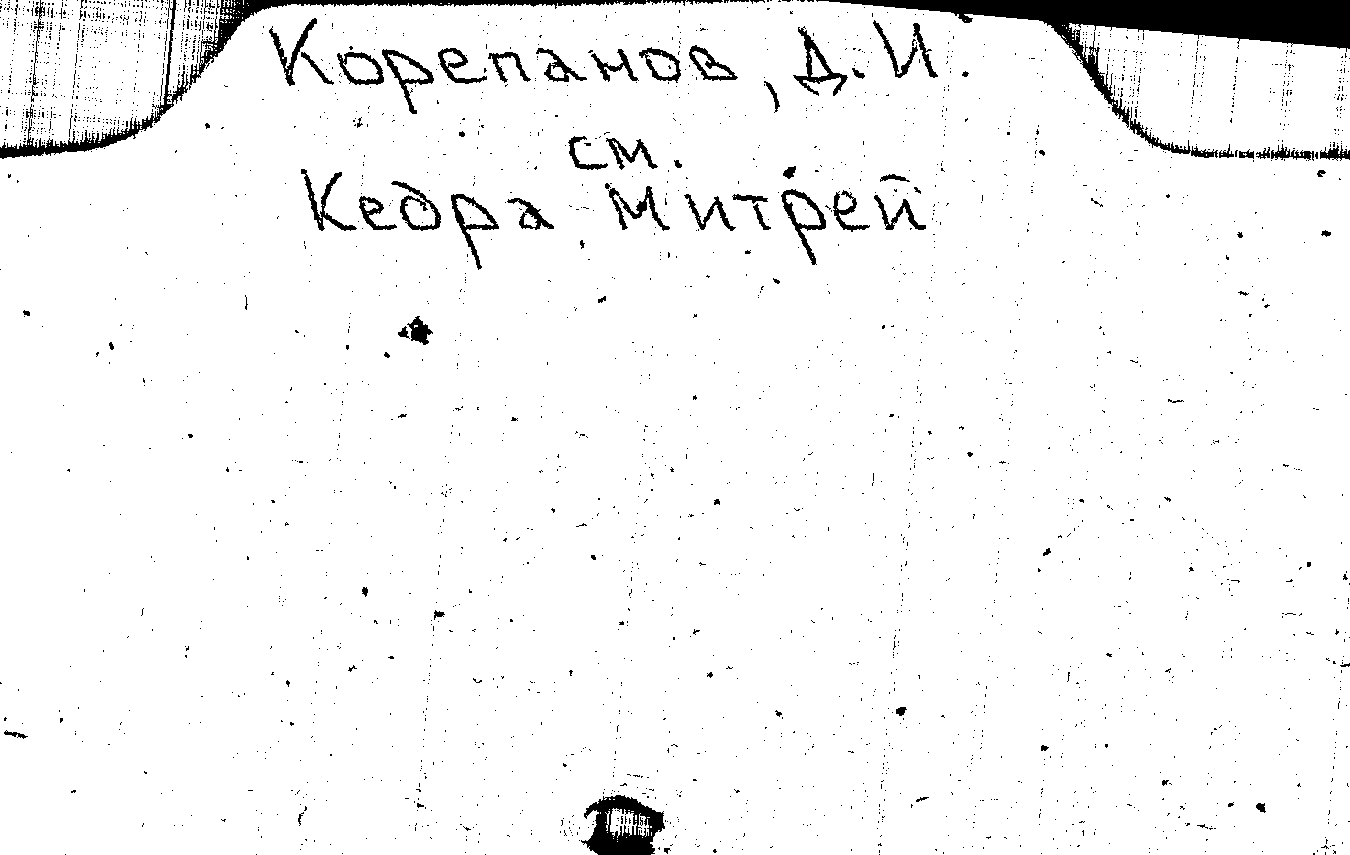 Корепанов, Д. И.
см.
Кедра Митрей